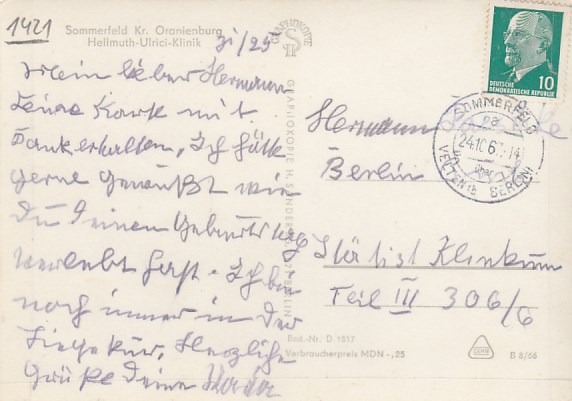 1421
Sommerfeld Kr. Oranienburg
Hellmuth-Ulrici-Klinik
Mein lieber Hermann
Deine Karte mit
Dank erhalten, Ich hätte
gerne gewußt wie
Du Deinen Geburtstag
verlebt hast. Ich bin
noch immer in der
Liegekur, Herzliche
Grüße Deine
GRAPHOKOPIE
GRAPHOKOPIE H. SANDER BERLIN
DEUTSCHE
DEMOKRATISCHE REPUBLIK
10
SOMMERFELD
24.10.6
über
VELTEN BERLIN
Hermann
Berlin
Städtist Klinikum
Teil III 306/6
Best.-Nr. D 1817
Verbraucherpreis MDN -,25
B 8/66